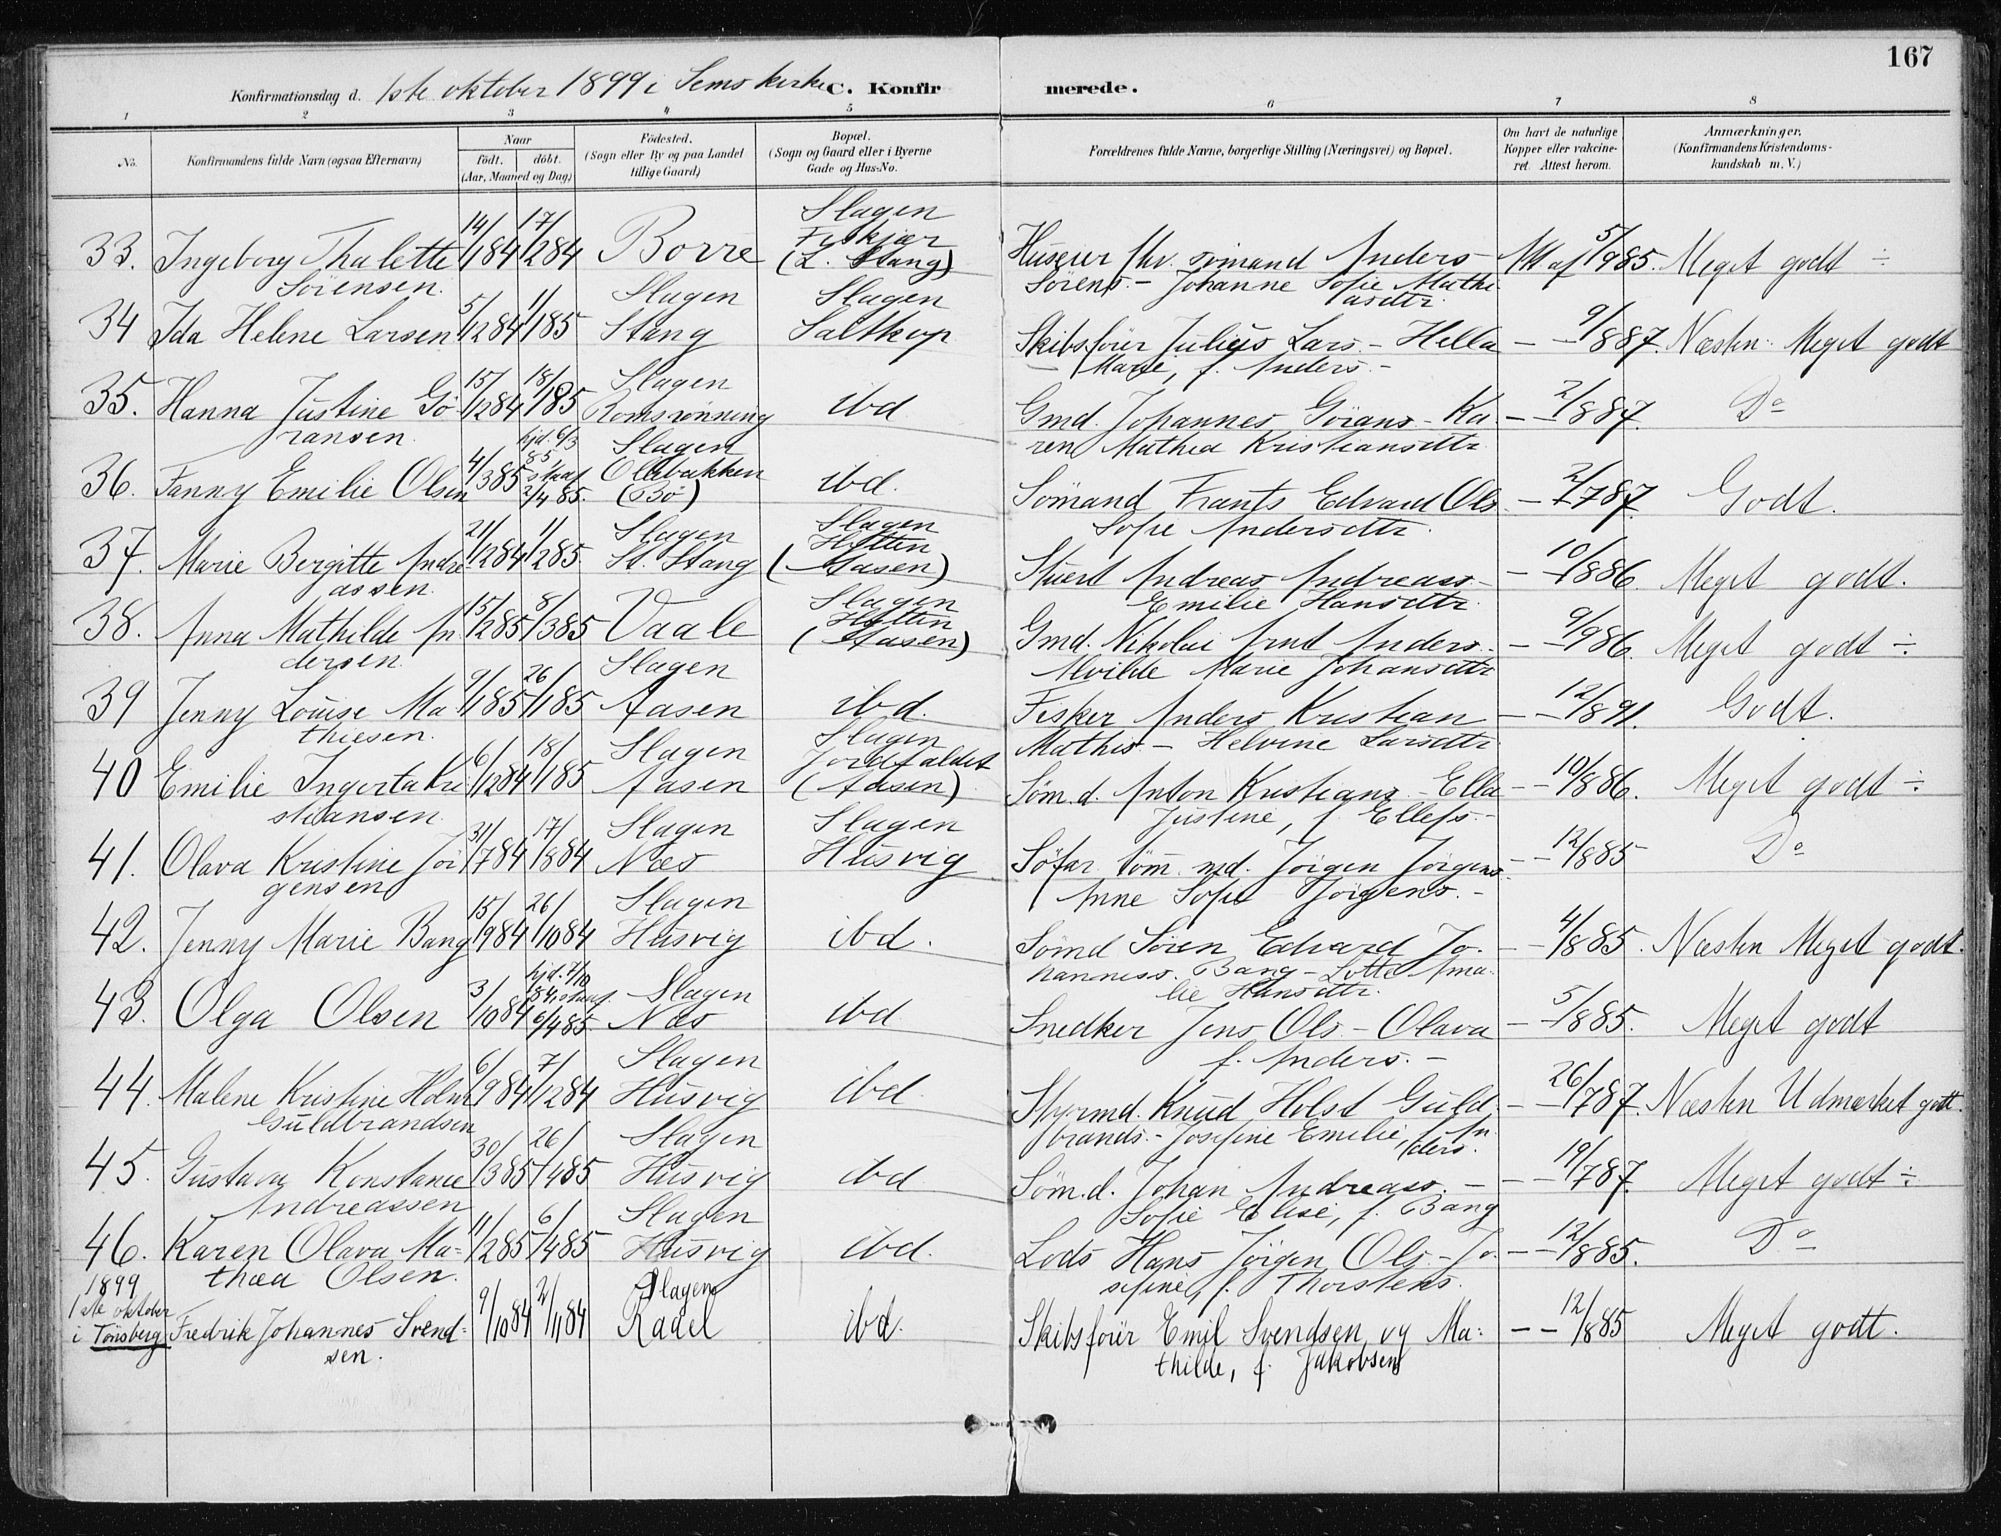 167
Konfirmationsdag d. 1ste oktober 1899 i Sems kirke C. Konfirmerede.
1 2 3 4 5 6 7 8
No. Konfirmandens fulde Navn (ogsaa Efternavn) Naar født, døbt. (Aar, Maaned og Dag) Fødested. (Sogn eller By og paa Landet tillige Gaard) Bopæl. (Sogn og Gaard eller i Byerne Gade og Hus-No. Forældrenes fulde Navne, borgerlige Stilling (Næringsvei) og Bopæl. Om havt de naturlige Kopper eller vakcineret. Attest herom. Anmærkninger. (Konfirmandens Kristendomskundskab m. V.)
Slagen
33. Ingeborg Thalette 14/1 84 17/2 84 Borre (L. Stang) Huseier fhv. sømand Anders Att af 5/9 85. Meget godt ÷
Sörensen. Sörens. - Johanne Sofie Mathi
asdtr.
Slagen Slagen
34 Ida Helene Larsen 5/12 84 1/1 85 Stang Saltkop Skibsförer Julius Lars. - Hella - - 9/8 87. Næsten Meget godt
Marie, f. Anders -
Slagen
35. Hanna Justine Gö 15/12 84 18/1 85 Romsrønning ibd Gmd. Johannes Görans - Ka - - 2/8 87. Do
ransen. ren Mathea Kristiansdtr.
hjd. 6/3 85 Slagen
36. Fanny Emilie Olsen 4/3 85 stadf 2/4 85. Ollebakken (Bö) ibd. Sömand Frants Edvard Ols - - 2/7 87. Godt.
Sofie Andersdtr.
Slagen Slagen
37. Marie Bergitte Andre 21/12 84 1/2 85. St. Stang Hytten (Aasen) Stuert Andreas Andreass. - - 10/8 86 Meget godt.
assen. Emilie Hansdtr.
Slagen
38. Anna Mathilde An 15/2 85 8/3 85 Vaale Hytten (Aasen) Gmd. Nikolai Arnt Anders. - - 9/9 86. Meget godt ÷
dersen. Alvilde Marie Johansdtr
Slagen
39 Jenny Louise Ma 9/1 85 26/1 85 Aasen ibd. Fisker Anders Kristian - - 12/8 91. Godt.
thiesen. Mathis - Helvine Larsdtr.
Slagen Slagen
40 Emilie Ingerta Kri 6/12 84 18/1 85 Aasen Jordfaldet (Aasen) Söm.d. Anton Kristians. - Ella - - 10/8 86. Meget godt ÷
stiansen. Justine, f. Ellefs. -
Slagen Slagen
41. Olava Kristine Jör 31/7 84 17/8 84 Næs Husvig Söfar. töm. md. Jörgen Jörgens. - - 12/8 85 Do
gensen Anne Sofie Jörgens. -
Slagen
42. Jenny Marie Bang 15/9 84 26/10 84 Husvig ibd. Sömd Sören Edvard Jo. - - 4/8 85. Næsten Meget godt.
hanness. Bang - Lotte Ama-
lie Hansdtr.
hjd. 7/10 84 Slagen
43. Olga Olsen 3/10 84 stadf. 6/4 85 Næs ibd Snedker Jens Ols - Olava - - 5/8 85. Meget godt
f. Anders. -
Slagen
44. Malene Kristine Holm 6/9 84 7/12 84 Husvig ibd. Styrmd. Knud Holst Guld - - 26/7 87 Næsten Udmærket godt.
Guldbrandsen brands. - Josefine Emilie, f. An
ders.
Slagen
45. Gustava Konstance 30/3 85 26/4 85 Husvig ibd Söm.d. Johan Andreass. - - - 19/7 87. Meget godt ÷
Andreassen Sofie Elise, f. Bang
Slagen
46. Karen Olava Ma= 11/2 85 6/4 85 Husvig ibd. Lods Hans Jörgen Ols - Jo - - 12/8 85. Do
thea Olsen. sefine, f. Thorstens.
1899
1ste oktober Slagen
i Tönsberg Fredrik Johannes Svend= 9/10 84 2/11 84 Raael ibd. Skibsförer Emil Svendsen og Ma= - - 12/8 85 Meget godt.
sen. thilde, f. Jakobsen